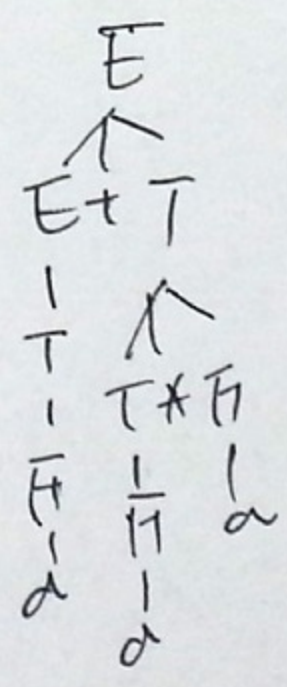 E
E + T
T
T * F
F
F a
a
a